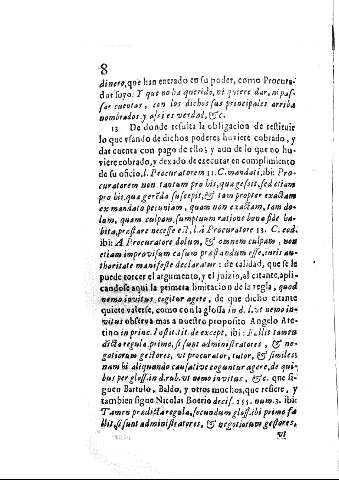 8
dinero, que han entrado en su poder, como Procura-
dor suyo: Y que no ha querido, ni quiere dar, ni pas-
sar cuentas, con los dichos sus principales arriba
nombrados y assi es verdad, &c.
13 De donde resulta la obligacion de restituir
lo que vsando de dichos poderes huviere cobrado, y
dar cuenta con pago de ello; y aun de lo que no hu-
viere cobrado, y dexado de executar en complimiento
de su oficio, l. Procuratorem 11. C. mandati, ibi: Pro-
curatorem non tantum pro his, quæ gessit, sed etiam
pro his, quæ gerẽda suscepit, & tam propter exactam
ex mandato pecuniam, quam non exactam, tam do-
lum, quam culpam, sumptuum ratione bona fide ha-
bita, præstare necesse est, l. à Procuratore 13. C. eod.
ibi: A Procuratore dolum, & omnem culpam, non
etiam improvisum casum præstandum esse, iuris au-
thoritate manifeste declaratur: de calidad, que se le
puede torcer el argumento, y el juizio, al citante, apli-
candose aqui la primera limitacion de la regla, quod
nemo invitus cogitur agere, de que dicho citante
quiere valerse, como con la glossa in d. l. vt nemo in-
vitus observa mas a nuestro proposito Angelo Are-
tino in princ. Instit. de except. ibi: Fallit tamen
dicta regula primo, si sunt administratores, & ne-
gotiorum gestores, vt procurator, tutor, & similes
nam hi aliquando causative coguntur agere, de qui-
bus per gloss. in d. rub. vt nemo invitus, &c. que si-
guen Bartulo, Baldo, y otros muchos, que refiere, y
tambien sigue Nicolas Boerio decis. 255. num. 3. ibi:
Tamen prædicta regula, secundum gloss. ibi primo fa-
llit, si sunt administratores, & negotiorum gestores,
vt